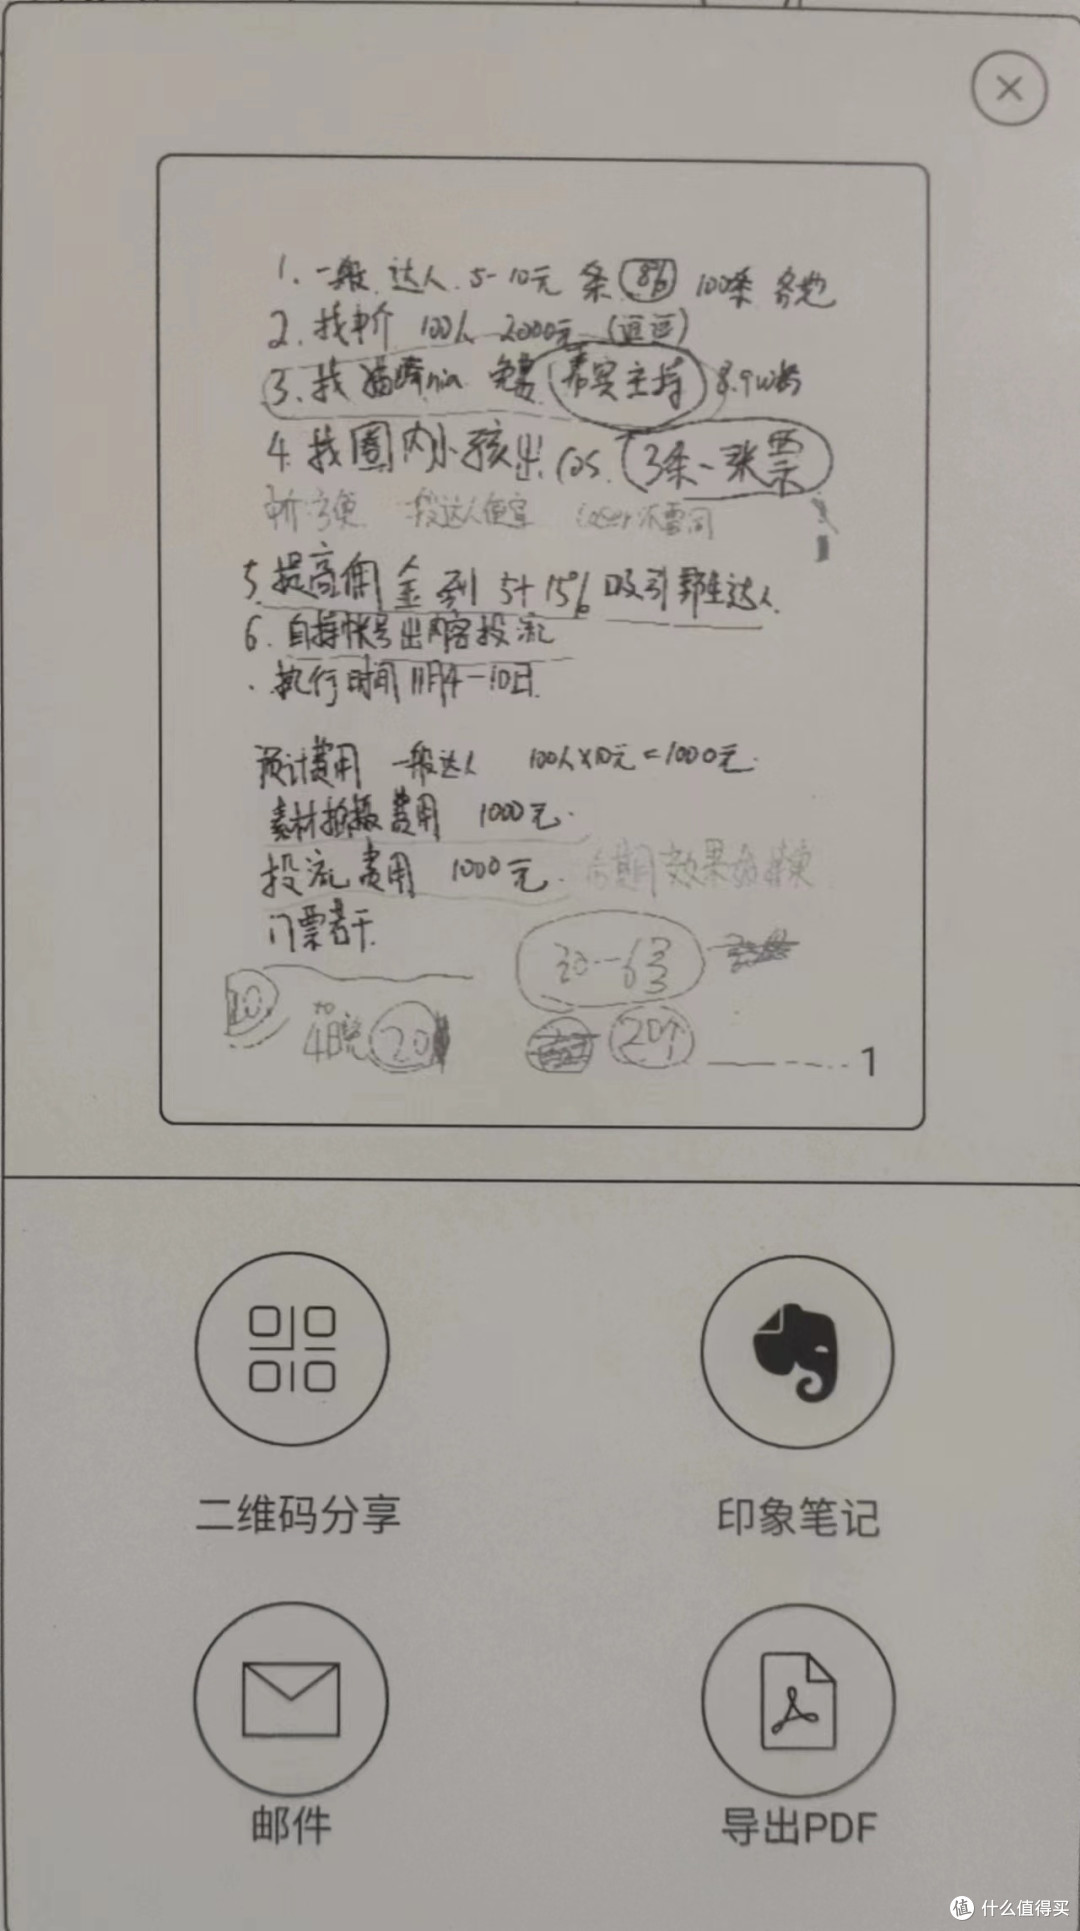 1. 一般 达人 5-10元 条 8% 100条 各地
2. 找中介 100人 2000元
3. 找 猫 nia 免费 嘉宾主持 8.9w粉
4. 找圈内小孩出 cos. 3条一张票
中介方便 一般达人便宜 coser不雷同
5. 提高佣金到 5+15% 吸引野生达人
6. 自持帐号出内容投流
. 执行时间 11月4-10日.
预计费用 一般达人 100人×10元=1000元.
素材拍摄费用 1000元.
投流费用 1000元. 后期 效果
门票若干.
30-63
10. 48 20 20个
1
二维码分享
印象笔记
邮件
导出PDF
值 什么值得买